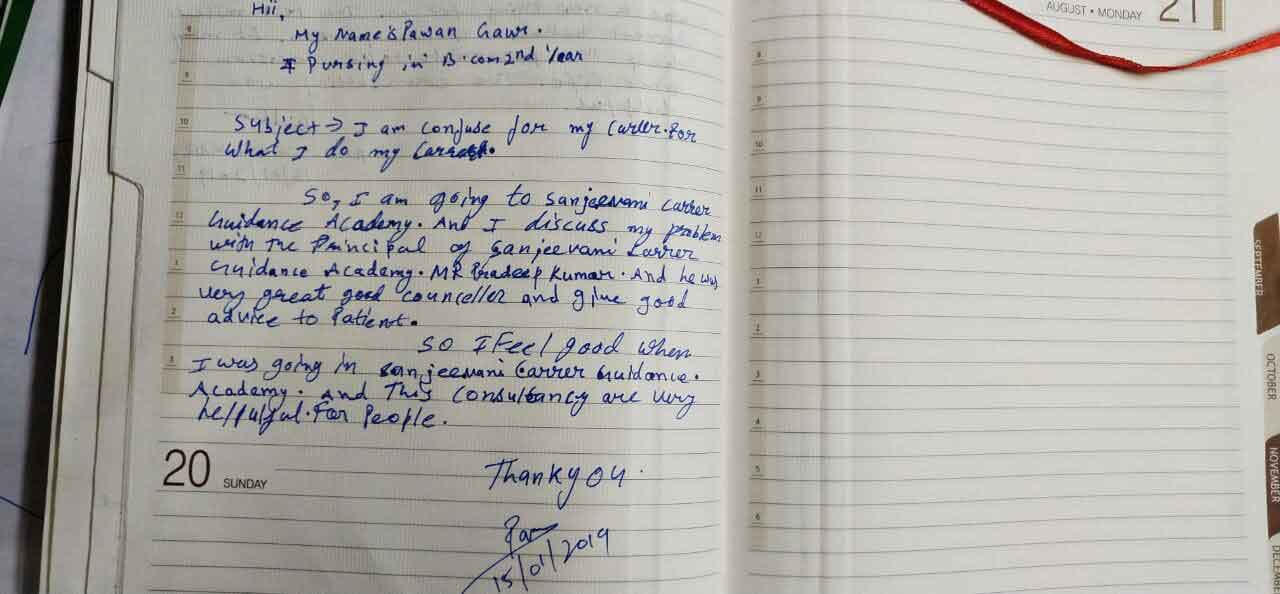 Hii,
My Name is Pawan Gawr.
I Pursing in B.com 2nd Year
Subject → I am confuse for my Career. For
what I do my Career.
So, I am going to Sanjeevani Carrer
Guidance Academy. And I discuss my problem
with The Principal of Sanjeevani Carrer
Guidance Academy. MR Pradeep Kumar. And he was
very great good counceller and give good
advice to Patient.
SO I Feel good when
I was going in Sanjeevani Carrer Guidance.
Academy. And This Consultancy are very
helpful. For People.
20 SUNDAY
Thank you
15/01/2019
AUGUST • MONDAY 21
8
9
10
11
12
1
2
3
4
5
6
SEPTEMBER
OCTOBER
NOVEMBER
DECEMBE